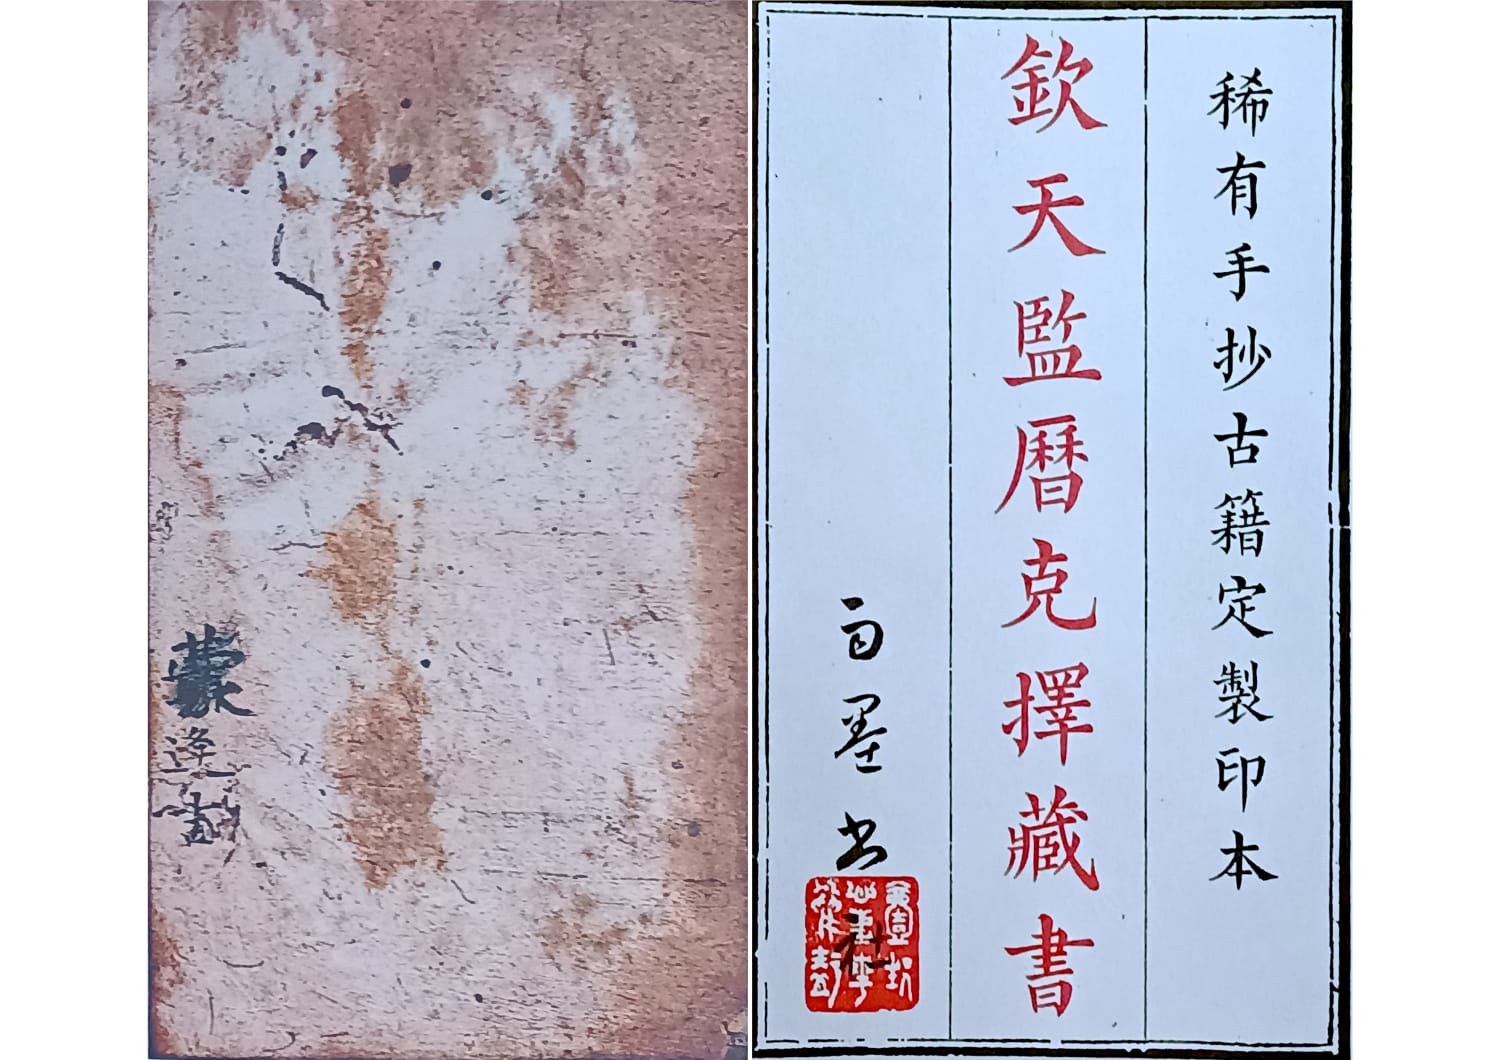 稀有手抄古籍定製印本
欽天監曆克擇藏書
白墨书社
蒙逢書